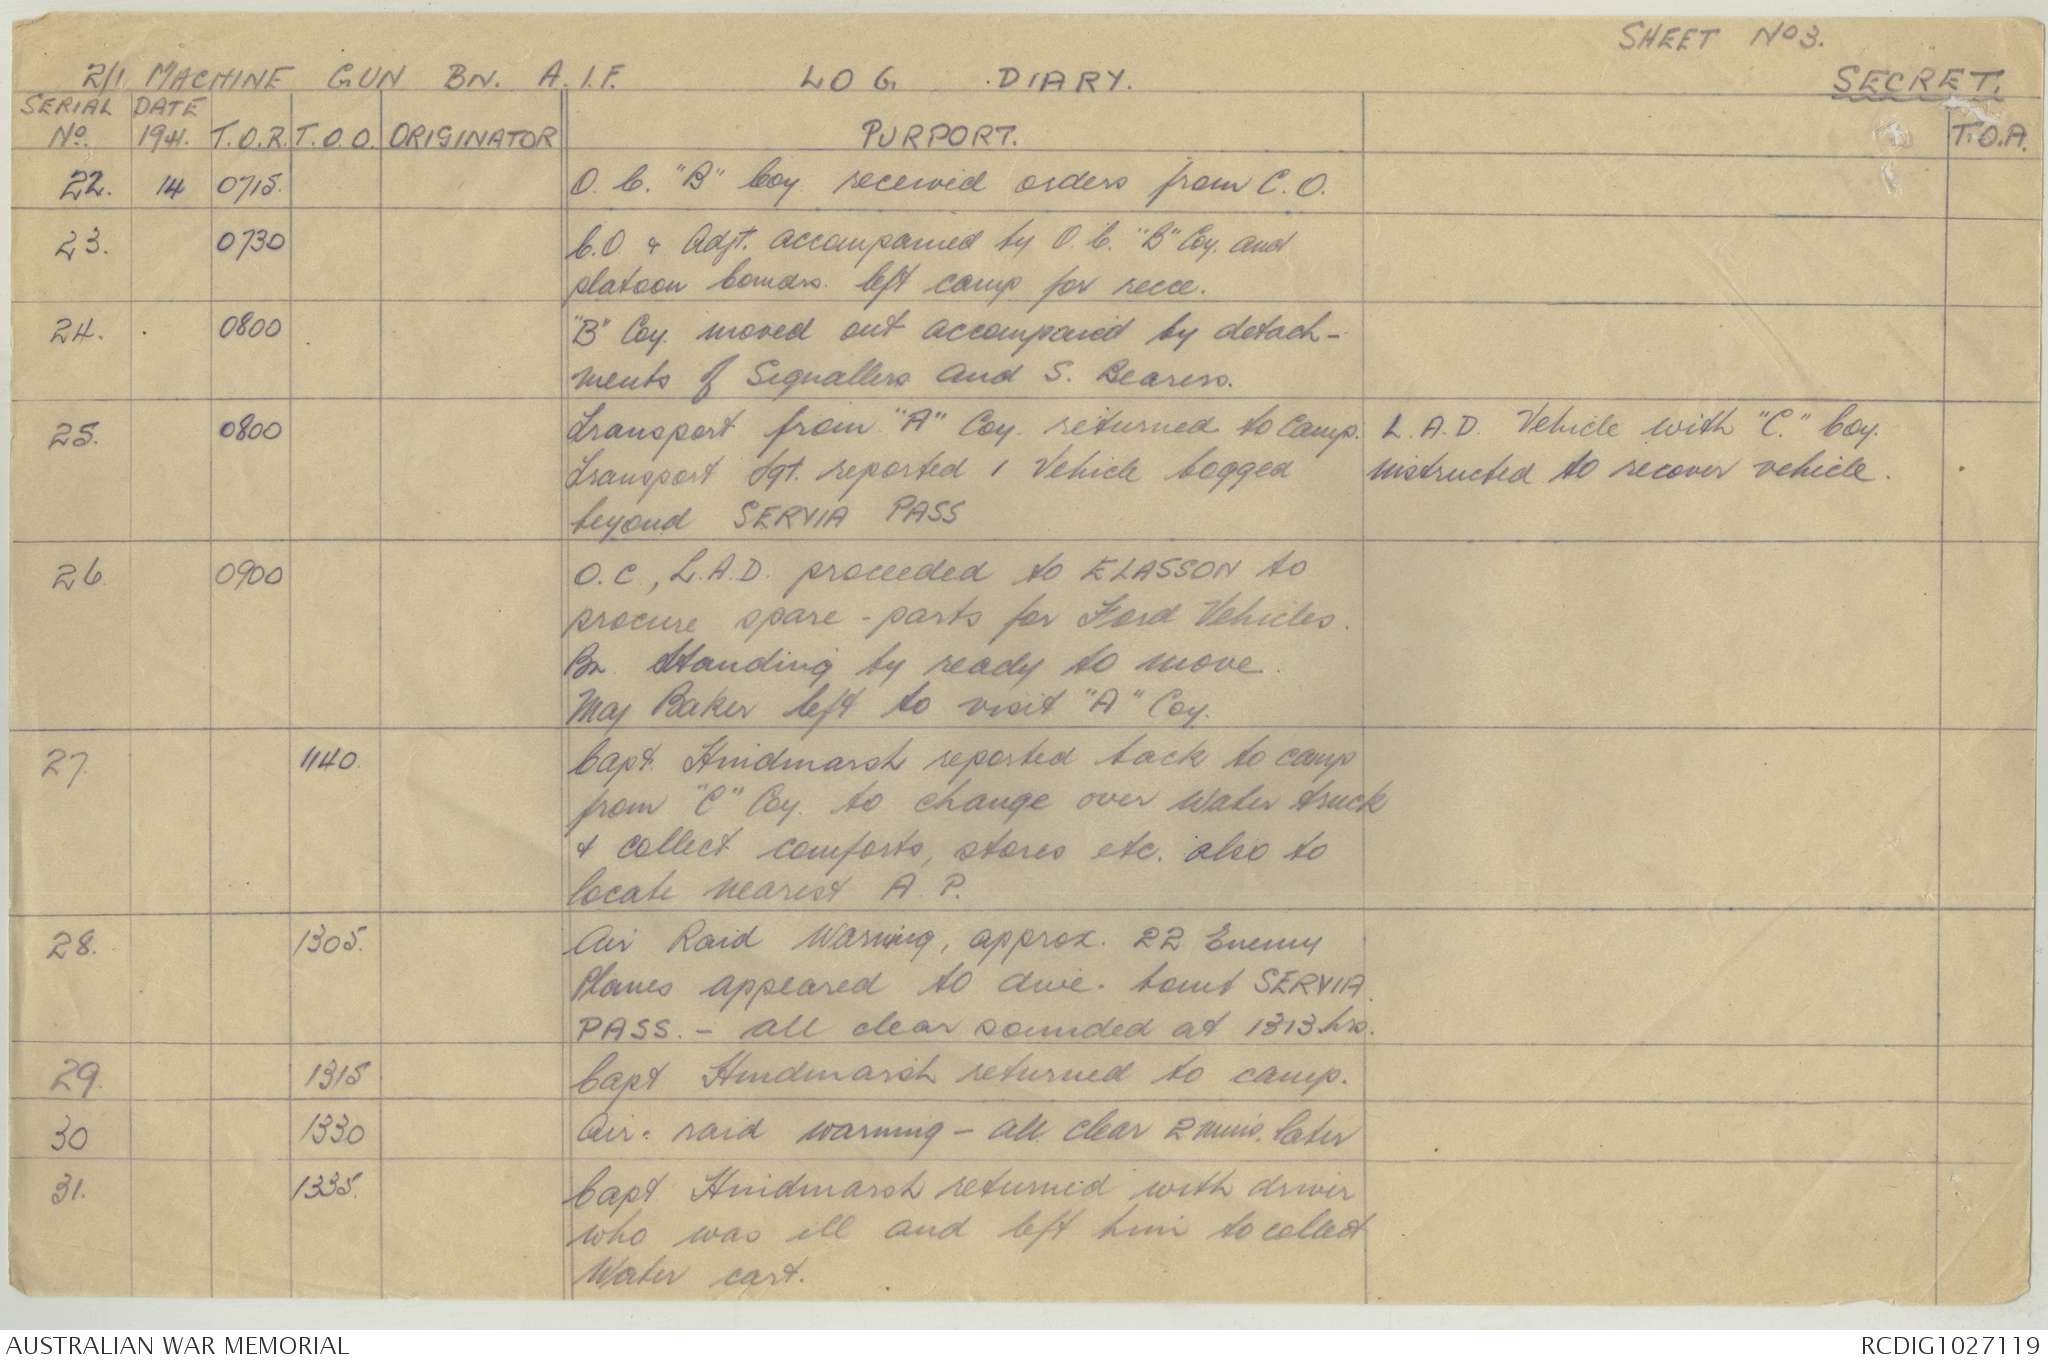 SHEET No 3.
2/1 MACHINE GUN BN. A.I.F. LOG DIARY.
SECRET.
SERIAL No. DATE 1941. T.O.R. T.O.O. ORIGINATOR PURPORT. T.O.A.
22. 14 0715. O.C. "B" Coy received orders from C.O.
23. 0730 C.O. & Adjt. accompanied by O.C. "B" Coy. and
platoon Comdrs. left camp for recce.
24. 0800 "B" Coy. moved out accompanied by detach-
ments of Signallers and S. Bearers.
25. 0800 Transport from "A" Coy. returned to Camp. L.A.D. Vehicle with "C." Coy.
Transport Sgt. reported 1 Vehicle bogged instructed to recover vehicle.
beyond SERVIA PASS
26. 0900 O.C., L.A.D. proceeded to ELASSON to
procure spare-parts for Ford Vehicles.
Bn. Standing by ready to move.
Maj Baker left to visit "A" Coy.
27. 1140. Capt. Hindmarsh reported back to camp
from "C" Coy. to change over water truck
& collect comforts, stores etc. also to
locate nearest A.P.
28. 1305. Air Raid Warning, approx. 22 Enemy
Planes appeared to dive-bomb SERVIA
PASS. - all clear sounded at 1313 hrs.
29. 1315 Capt Hindmarsh returned to camp.
30 1330 Air-raid warning - all clear 2 mins. later
31. 1335. Capt. Hindmarsh returned with driver
who was ill and left him to collect
Water cart.
AUSTRALIAN WAR MEMORIAL RCDIG1027119